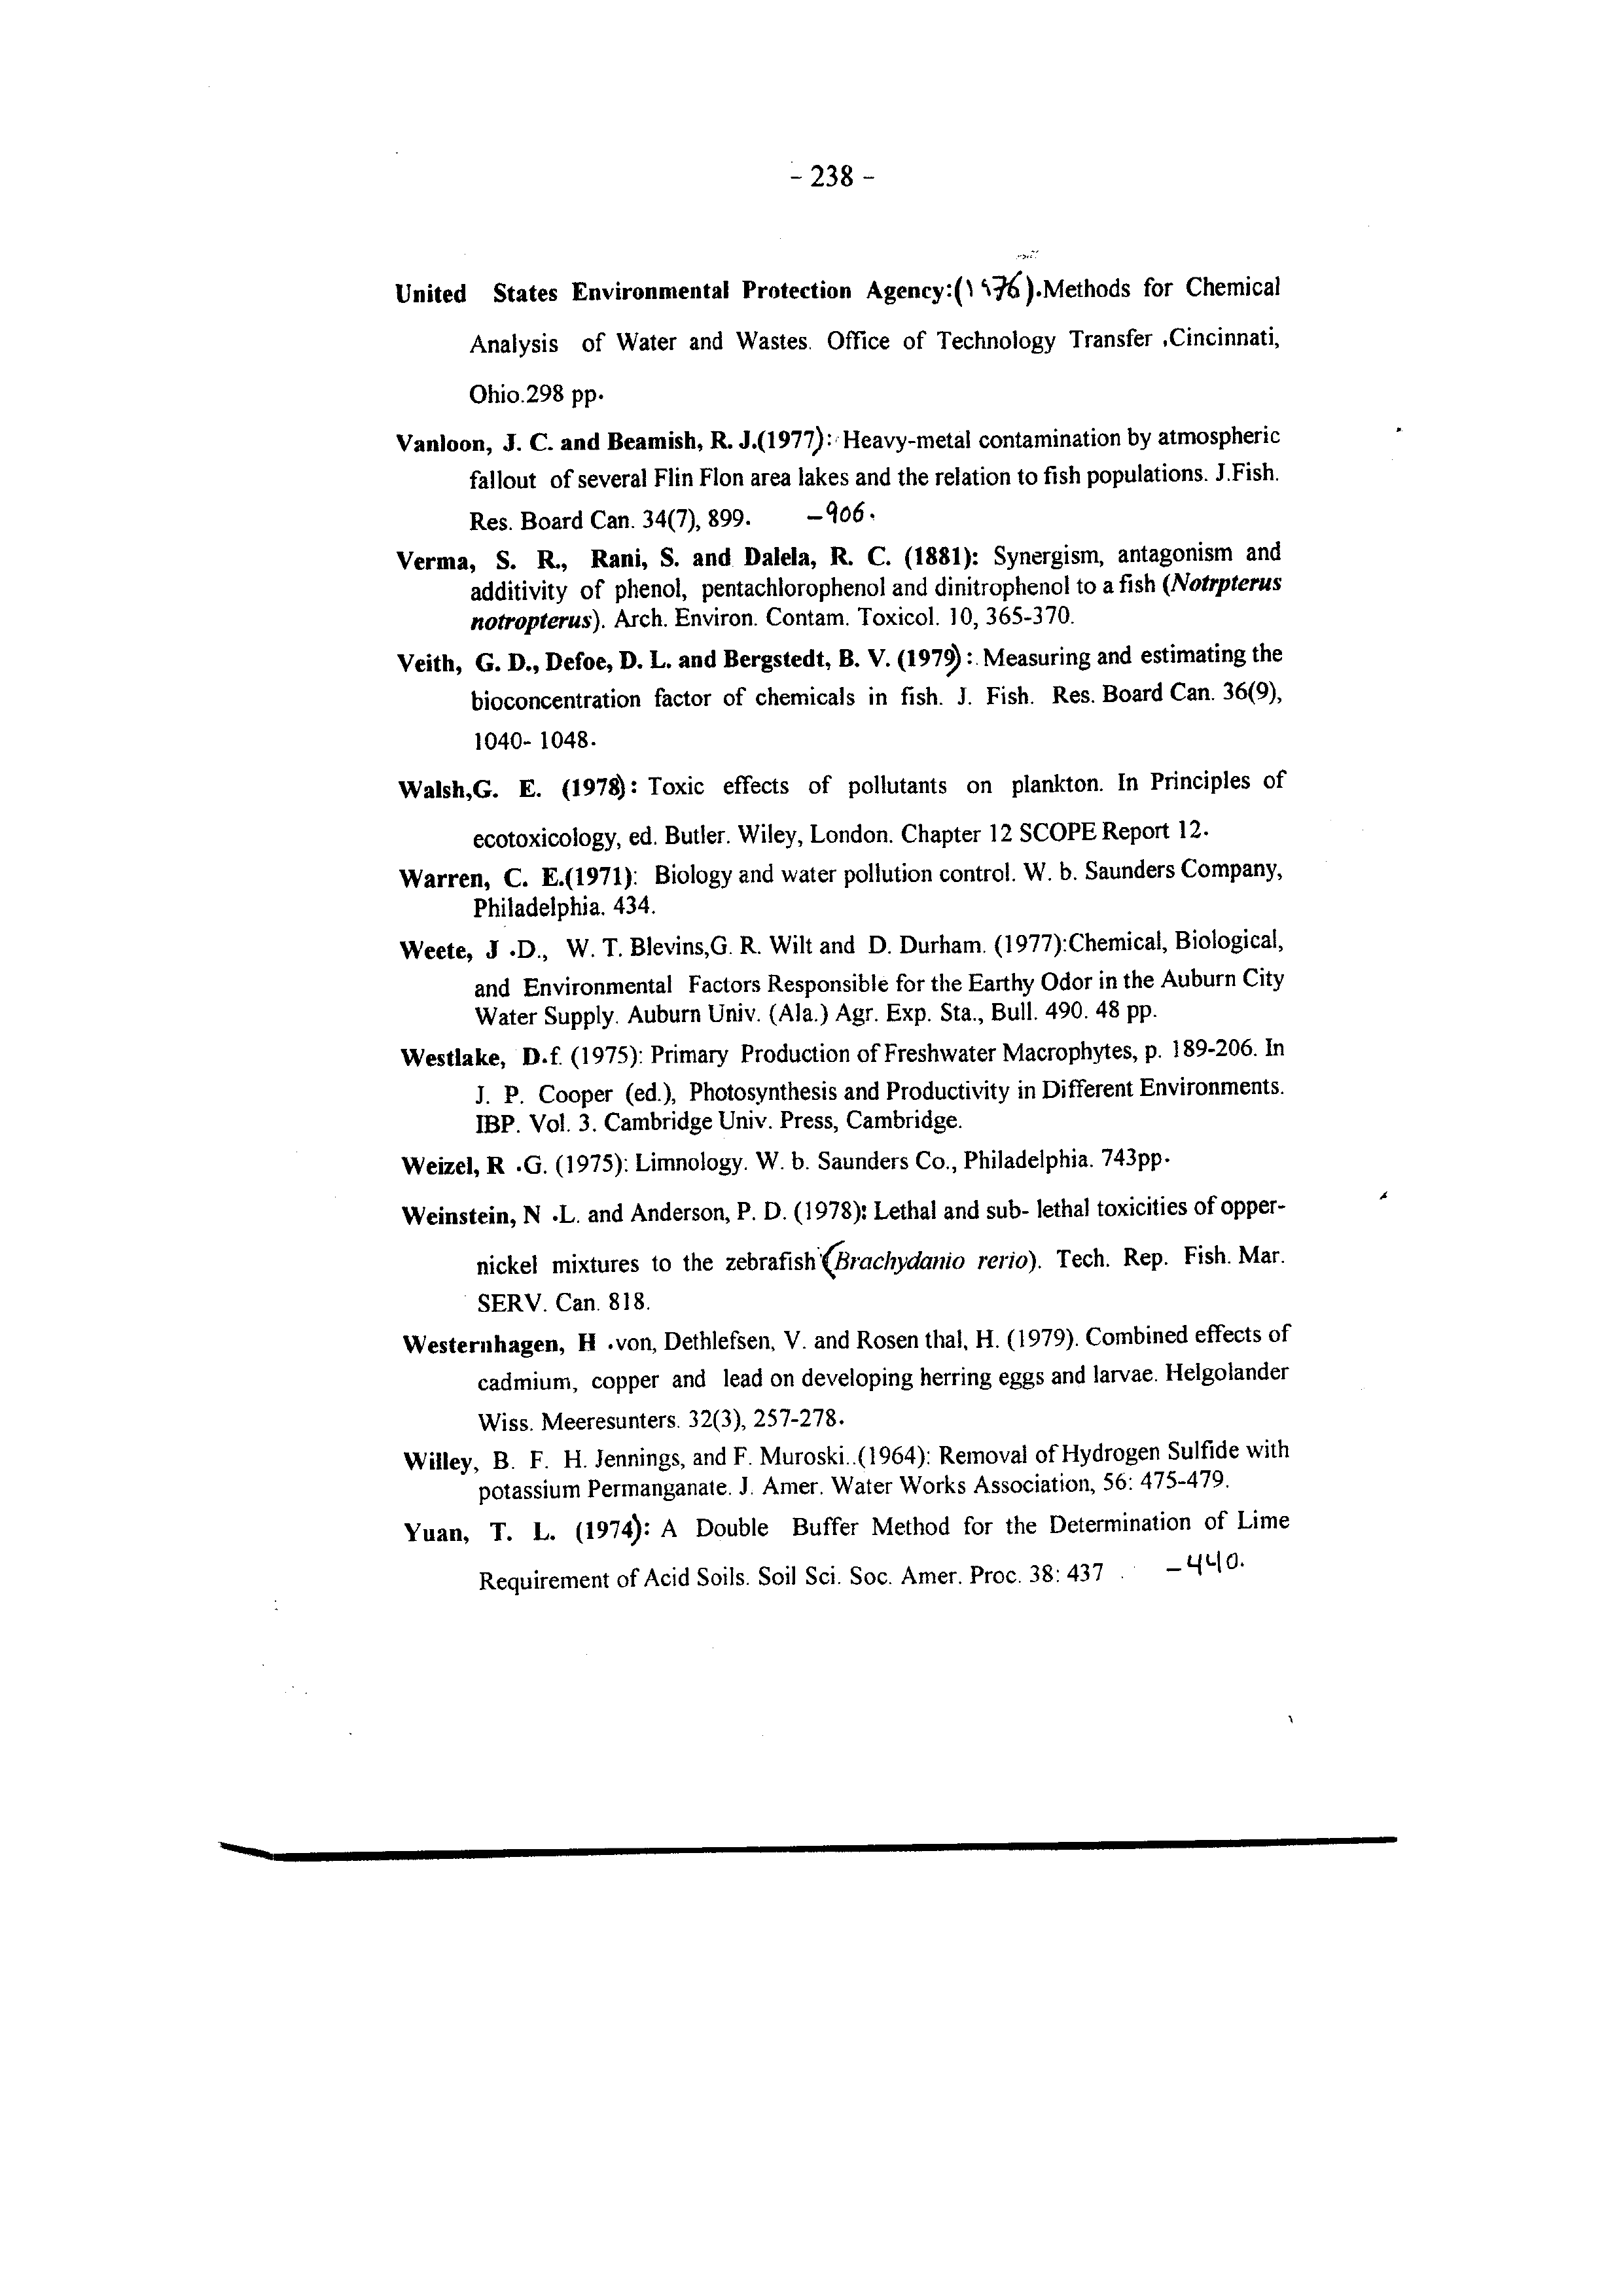 - 238 -
United States Environmental Protection Agency:(1976).Methods for Chemical
Analysis of Water and Wastes. Office of Technology Transfer ,Cincinnati,
Ohio.298 pp.
Vanloon, J. C. and Beamish, R. J.(1977): Heavy-metal contamination by atmospheric
fallout of several Flin Flon area lakes and the relation to fish populations. J.Fish.
Res. Board Can. 34(7), 899. -906.
Verma, S. R., Rani, S. and Dalela, R. C. (1881): Synergism, antagonism and
additivity of phenol, pentachlorophenol and dinitrophenol to a fish (Notrpterus
notropterus). Arch. Environ. Contam. Toxicol. 10, 365-370.
Veith, G. D., Defoe, D. L. and Bergstedt, B. V. (1979) : Measuring and estimating the
bioconcentration factor of chemicals in fish. J. Fish. Res. Board Can. 36(9),
1040- 1048.
Walsh,G. E. (1978): Toxic effects of pollutants on plankton. In Principles of
ecotoxicology, ed. Butler. Wiley, London. Chapter 12 SCOPE Report 12.
Warren, C. E.(1971): Biology and water pollution control. W. b. Saunders Company,
Philadelphia. 434.
Weete, J .D., W. T. Blevins,G. R. Wilt and D. Durham. (1977):Chemical, Biological,
and Environmental Factors Responsible for the Earthy Odor in the Auburn City
Water Supply. Auburn Univ. (Ala.) Agr. Exp. Sta., Bull. 490. 48 pp.
Westlake, D.f. (1975): Primary Production of Freshwater Macrophytes, p. 189-206. In
J. P. Cooper (ed.), Photosynthesis and Productivity in Different Environments.
IBP. Vol. 3. Cambridge Univ. Press, Cambridge.
Weizel, R .G. (1975): Limnology. W. b. Saunders Co., Philadelphia. 743pp.
Weinstein, N .L. and Anderson, P. D. (1978): Lethal and sub- lethal toxicities of opper-
nickel mixtures to the zebrafish (Brachydanio rerio). Tech. Rep. Fish. Mar.
SERV. Can. 818.
Westernhagen, H .von, Dethlefsen, V. and Rosen thal, H. (1979). Combined effects of
cadmium, copper and lead on developing herring eggs and larvae. Helgolander
Wiss. Meeresunters. 32(3), 257-278.
Willey, B. F. H. Jennings, and F. Muroski..(1964): Removal of Hydrogen Sulfide with
potassium Permanganate. J. Amer. Water Works Association, 56: 475-479.
Yuan, T. L. (1974): A Double Buffer Method for the Determination of Lime
Requirement of Acid Soils. Soil Sci. Soc. Amer. Proc. 38: 437 -440.